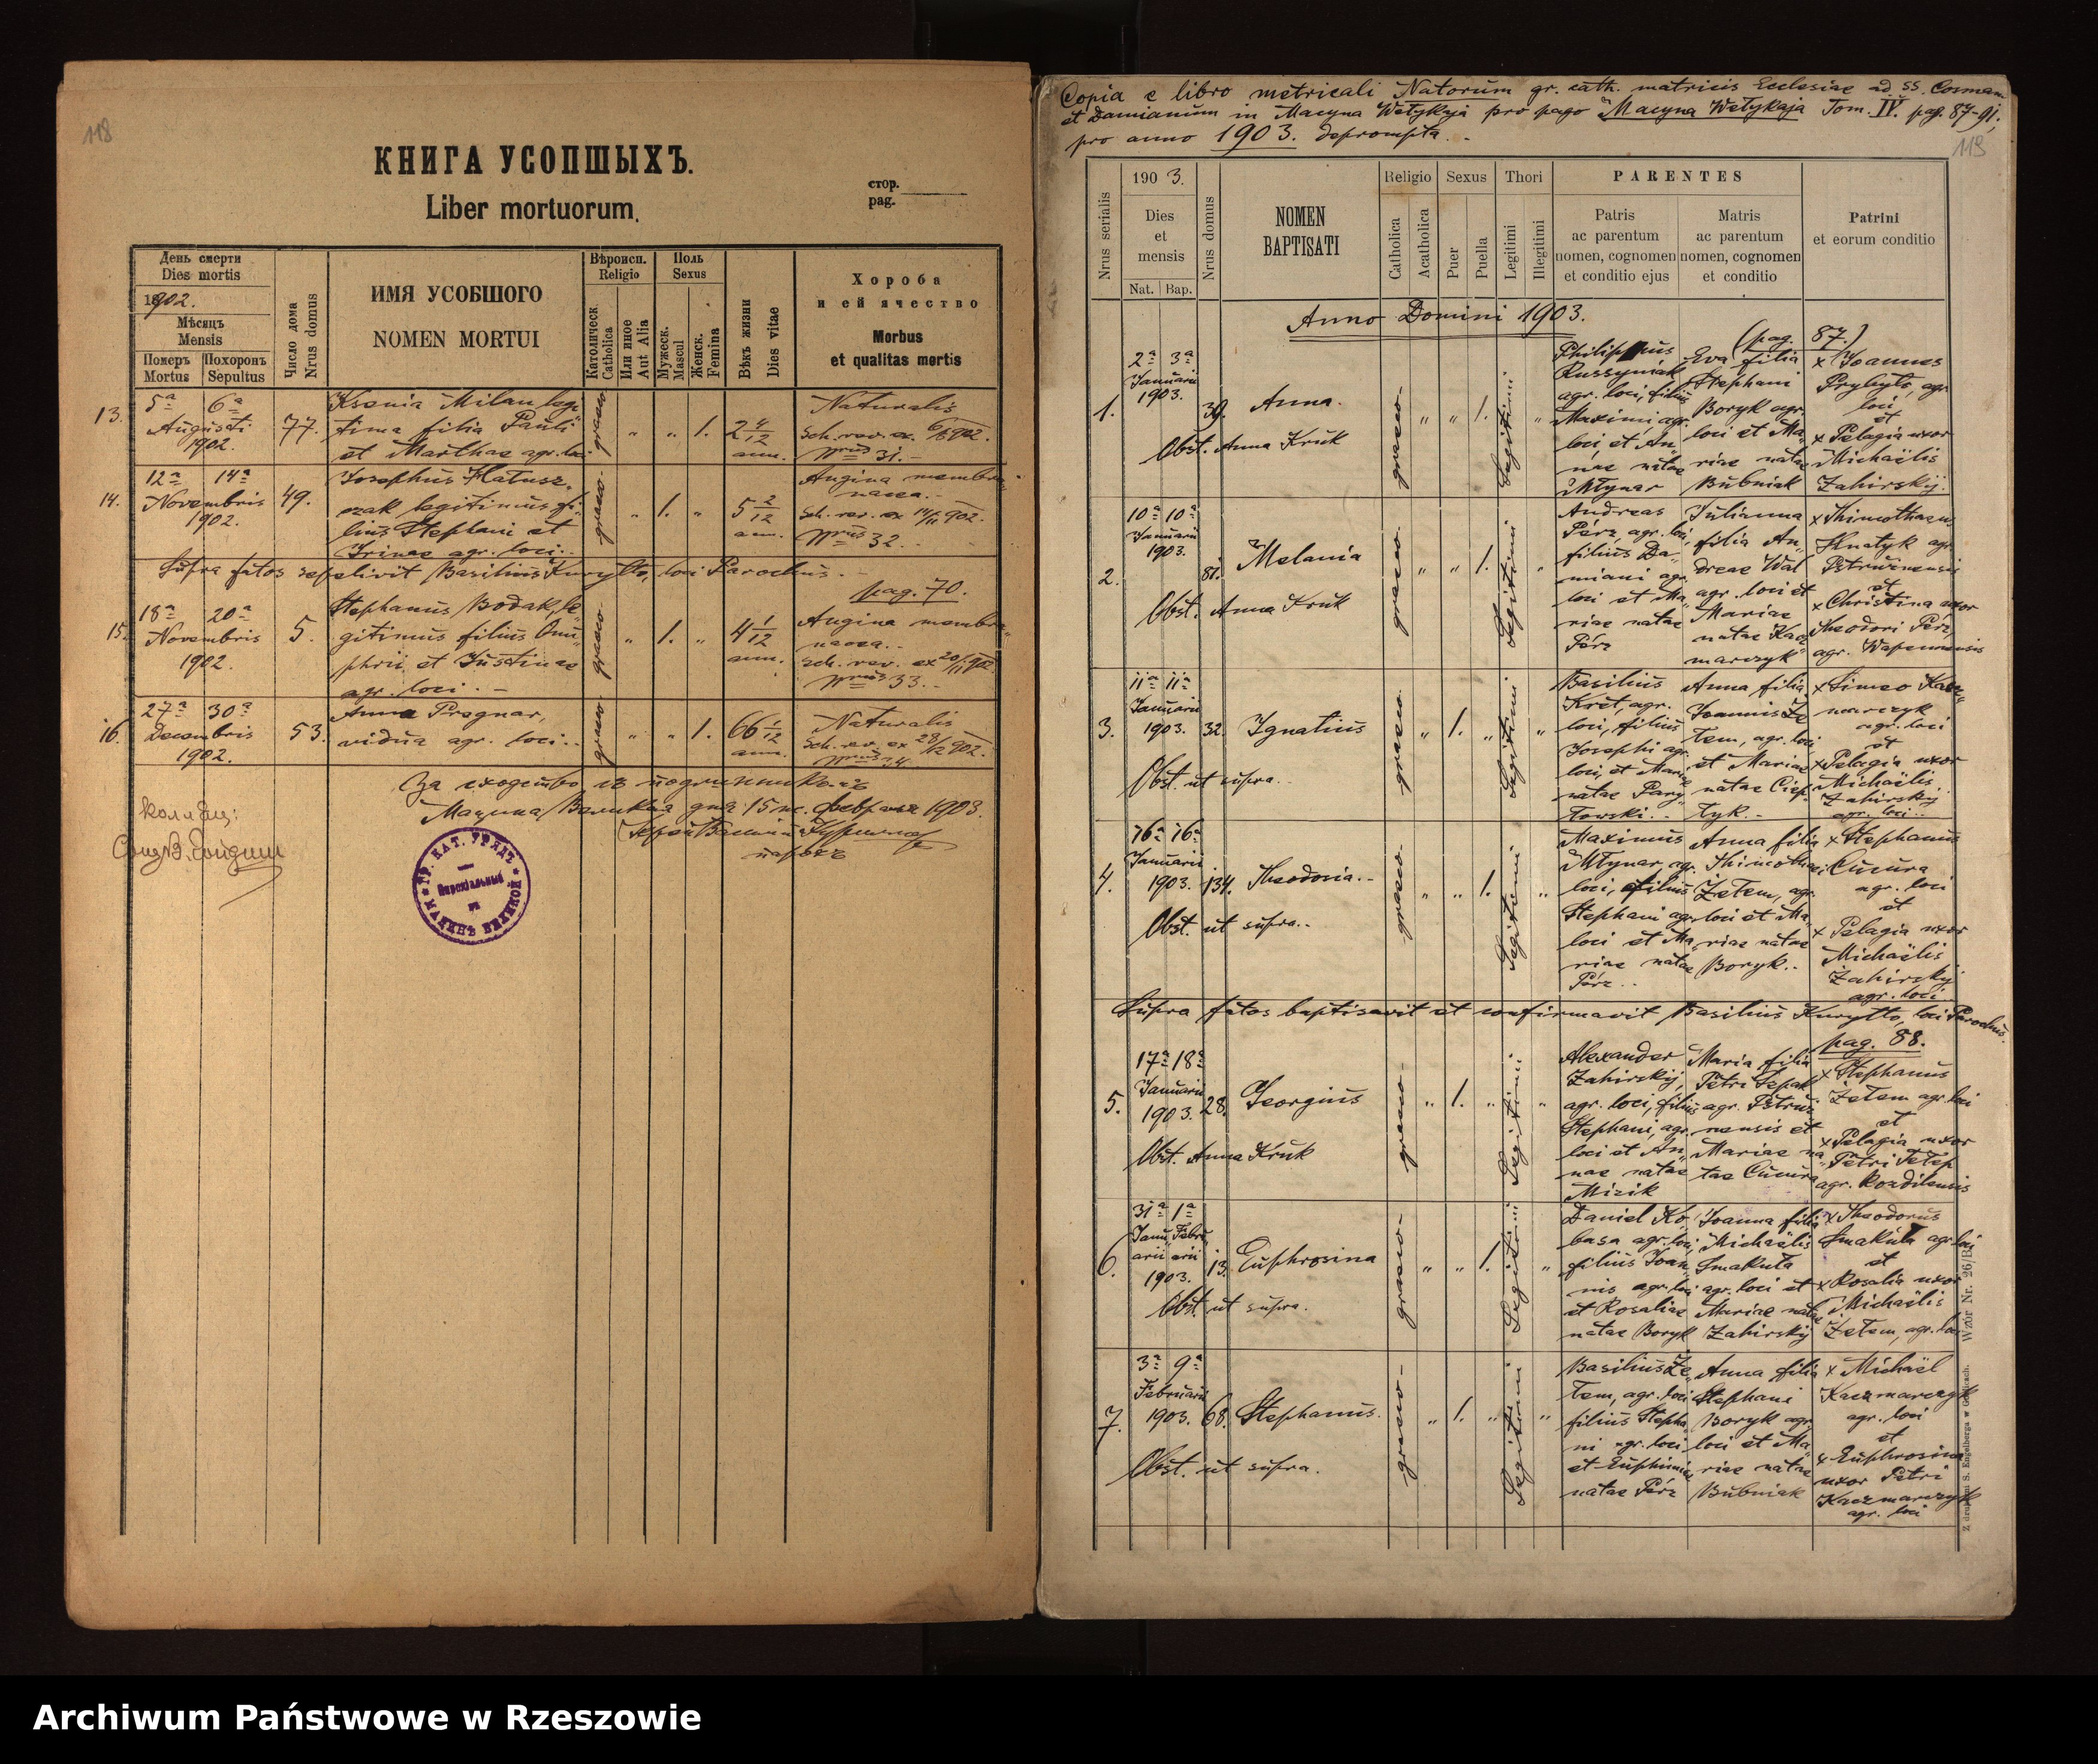 118
КНИГА УСОПШЫХЪ.
Liber mortuorum.
стор.
pag.
День смерти
Dies mortis
1902.
Мѣсяцъ
Mensis
Померъ
Mortus
Похоронъ
Sepultus
Число дома
Nrus domus
ИМЯ УСОБШОГО
NOMEN MORTUI
Вѣроисп.
Religio
Католическ
Catholica
Или иное
Aut Alia
Поль
Sexus
Мужеск.
Mascul
Женск.
Femina
Вѣкъ жизни
Dies vitae
Хороба
и ей ячество
Morbus
et qualitas mortis
13.
5ª 6ª
Augusti
1902.
77.
Ksenia Milan legi-
tima filia Pauli
et Marthae agr. loci
graeco
" " 1.
2 4/12
ann.
Naturalis
Sch. rev. ex 6/8 902.
Nrus 31.-
14.
12ª 14ª
Novembris
1902.
49.
Josephus Hatusz-
czak legitimus fi-
lius Stephani et
Irinae agr. loci..
graeco-
" 1. "
5 2/12
ann.
Angina membra-
nacea.-
Sch. rev. ex 14/11 902.
Nrus 32.
Supra fatos sepelivit Basilius Kuryłło, loci Parochus.-
pag. 70.
15.
18ª 20ª
Novembris
1902.
5.
Stephanus Bodak, le-
gitimus filius Onu-
phrii et Justinae
agr. loci.-
graeco
" 1. "
4 1/12
ann.
Angina membra-
nacea.-
Sch. rev. ex 20/11 902
Nrus 33.-
16.
27ª 30ª
Decembris
1902.
53.
Anna Pregnar,
vidua agr. loci..
graeco
" " 1.
66 1/12
ann.
Naturalis
Sch. rev. ex 28/12 902.
Nrus 34
За сходство съ подлинникомъ
Мацина Велика дня 15 фебраля 1903.
парохъ
ГР. КАТ. УРЯДЪ
Парохіальный
въ
МАЦИНѢ ВЕЛИКОЙ
Copia e libro metricali Natorum gr. cath. matricis Ecclesiae ad SS. Cosmam
et Damianum in Macyna Wełykaja pro pago Macyna Wełykaja Tom. IV. pag. 87-91,
pro anno 1903. deprompta.-
119
Nrus serialis
190 3.
Dies
et
mensis
Nat. Bap.
Nrus domus
NOMEN
BAPTISATI
Religio
Catholica
Acatholica
Sexus
Puer
Puella
Thori
Legitimi
Illegitimi
PARENTES
Patris
ac parentum
nomen, cognomen
et conditio ejus
Matris
ac parentum
nomen, cognomen
et conditio
Patrini
et eorum conditio
Anno Domini 1903.
(pag. 87.)
1.
2ª 3ª
Januarii
1903.
39.
Anna.
Obst. Anna Kruk
graeco-
" " 1.
Legitimi
"
Philippus
Russyniak
agr. loci, filius
Maximi, agr.
loci, et An-
nae natae
Młynar
Eva filia
Stephani
Boryk agr.
loci et Ma-
riae natae
Bubniak
x Joannes
Prybyło, agr.
loci
et
x Pelagia uxor
Michaëlis
Zahirskij.
2.
10ª 10ª
Januarii
1903.
81.
Melania
Obst. Anna Kruk
graeco
" " 1.
Legitimi
"
Andreas
Pérz, agr. loci,
filius Da-
miani agr.
loci et Ma-
riae natae
Pérz
Julianna
filia An-
dreae Wal
agr. loci et
Mariae
natae Kacz-
marczyk
x Thimotheus
Hnatyk agr.
Pstrużnensis
et
x Christina uxor
Theodori Pérz,
agr. Wapennensis
3.
11ª 11ª
Januarii
1903.
32.
Ignatius
Obst. ut supra..
graeco
" 1. "
Legitimi
"
Basilius
Kret, agr.
loci, filius
Josephi agr.
loci, et Mariae
natae
Anna filia
Joannis Że-
łem, agr. loci
et Mariae
natae
x Simeo Kacz-
marczyk
agr. loci
et
x Pelagia uxor
Michaëlis
Zahirskij
agr. loci..
4.
16ª 16ª
Januarii
1903.
134.
Theodosia.-
Obst. ut supra..
graeco
" " 1.
Legitimi
"
Maximus
Młynar, agr.
loci, filius
Stephani agr.
loci et Ma-
riae natae
Pérz..
Anna filia
Thimothei
Żełem, agr.
loci et Ma-
riae natae
Boryk..
x Stephanus
Cucura
agr. loci
et
x Pelagia uxor
Michaëlis
Zahirskij
agr. loci
Supra fatos baptisavit et confirmavit Basilius Kuryłło, loci Parochus.
pag. 88.
5.
17ª 18ª
Januarii
1903.
28.
Georgius
Obst. Anna Kruk
graeco-
" 1. "
Legitimi
"
Alexander
Zahirskij,
agr. loci, filius
Stephani, agr.
loci et An-
nae natae
Mizik
Maria filia
Petri Szpak
agr. Pstruż-
nensis et
Mariae na-
tae Cucura
x Stephanus
Żełem agr. loci
et
x Pelagia uxor
Petri
agr. Rozdilensis
6.
31ª 1ª
Janu- Febru-
arii arii
1903.
13.
Euphrosina
Obst. ut supra.
graeco-
" " 1.
Legitimi
"
Daniel Ko-
basa agr. loci,
filius Joan-
nis agr. loci
et Rosaliae
natae Boryk
Joanna filia
Michaëlis
Smakuła
agr. loci et
Mariae natae
Zahirskij
x Theodorus
Smakuła agr. loci
et
x Rosalia uxor
Michaëlis
Żełem, agr. loci
7.
3ª 9ª
Februarii
1903.
68.
Stephanus.
Obst. ut supra.
graeco-
" 1. "
Legitimi
"
Basilius Że-
łem, agr. loci
filius Stepha-
ni agr. loci
et Euphimiae
natae Pérz
Anna filia
Stephani
Boryk agr.
loci et Ma-
riae natae
Bubniak
x Michaël
Kaczmarczyk
agr. loci
et
x Euphrosina
uxor Petri
Kaczmarczyk
agr. loci
Wzór Nr. 26/B
Z drukarni S. Engelberga w Gorlicach.
Archiwum Państwowe w Rzeszowie